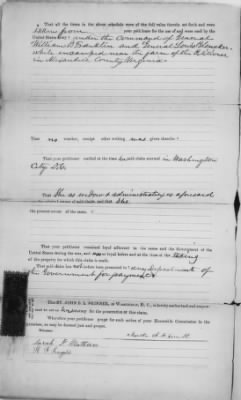 That all the items in the above schedule were of the full value therein set forth and were
taken from your petitioner for the use of and were used by the
United States Army under the command of General
William B Franklin and General Louis Blenker.
while encamped near the farm of the
in Alexandria County Virginia
That no voucher, receipt other writing was given therefor
That your petitioner resided at the time said claim accrued in Washington
City D.C.
That she as widow & administratrix as aforesaid
the owner of said claim, and is the
the present owner of the same.
That your petitioner remained loyal adherent to the cause and the government of the
United States during the war, and was so loyal before and at the time of the taking
of the property for which this claim is made.
That said claim has not before been presented to any department of
the Government for payment
JOHN S. L. SKINNER, of Washington, D. C., hereby authorized and empowered
to act as her attorney for the prosecution of this claim.
Wherefore your petitioner prays for such action of your Honorable Commission in the
premises, as may be deemed just and proper.
Witnesses:
Sarah